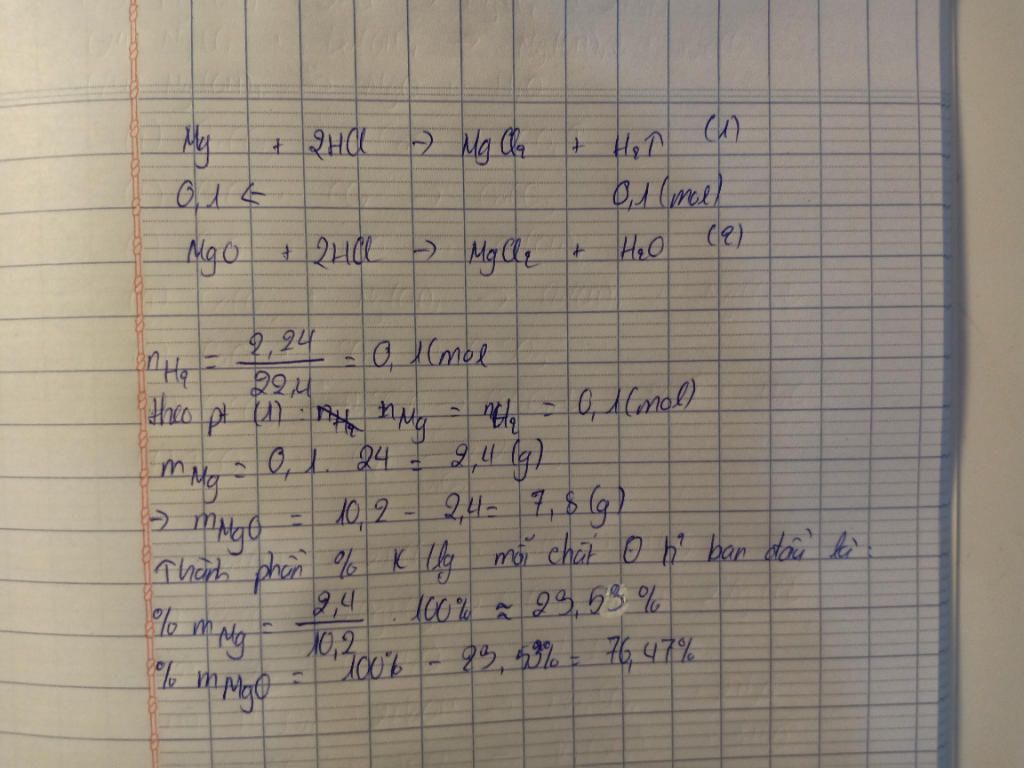 Mg + 2HCl → MgCl₂ + H₂↑ (1)
0,1 ← 0,1 (mol)
MgO + 2HCl → MgCl₂ + H₂O (2)
nH₂ = 2,24/22,4 = 0,1 (mol
theo pt (1) : nMg = nH₂ = 0,1 (mol)
mMg = 0,1 . 24 = 2,4 (g)
→ mMgO = 10,2 - 2,4 = 7,8 (g)
Thành phần % K lg mỗi chất O h² ban đầu là:
% mMg = 2,4/10,2 . 100% ≈ 23,53 %
% mMgO = 100% - 23,53% = 76,47%